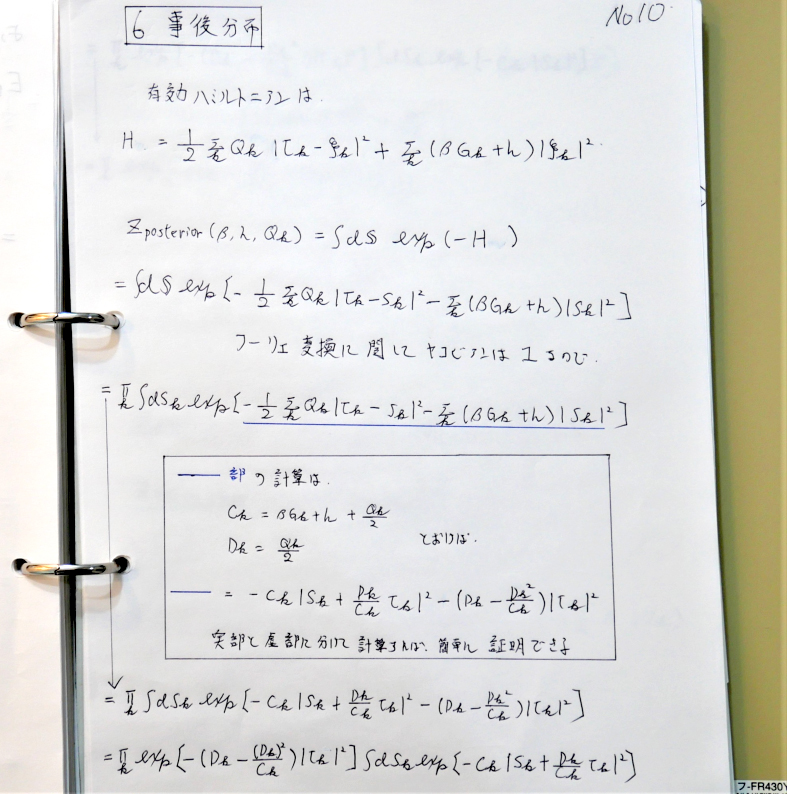 No 10
6 事後分布
有効ハミルトニアンは.
H = 1/2 Σ_k Q_k |τ_k - ξ_k|² + Σ_k (βG_k + h) |ξ_k|²
Z_posterior (β, h, Q_k) = ∫dS exp (-H)
= ∫dS exp [- 1/2 Σ_k Q_k |τ_k - S_k|² - Σ_k (βG_k + h) |S_k|²]
フーリエ変換に関してヤコビアンは 1 なので.
= Π_k ∫dS_k exp [- 1/2 Σ_k Q_k |τ_k - S_k|² - Σ_k (βG_k + h) |S_k|²]
部の計算は.
C_k = βG_k + h + Q_k/2
D_k = Q_k/2 とおけば.
= - C_k |S_k + D_k/C_k τ_k|² - (D_k - D_k²/C_k) |τ_k|²
実部と虚部に分けて計算すれば、簡単に証明できる
= Π_k ∫dS_k exp [- C_k |S_k + D_k/C_k τ_k|² - (D_k - D_k²/C_k) |τ_k|²]
= Π_k exp [- (D_k - (D_k)²/C_k) |τ_k|²] ∫dS_k exp [- C_k |S_k + D_k/C_k τ_k|²]
フ-FR430Y